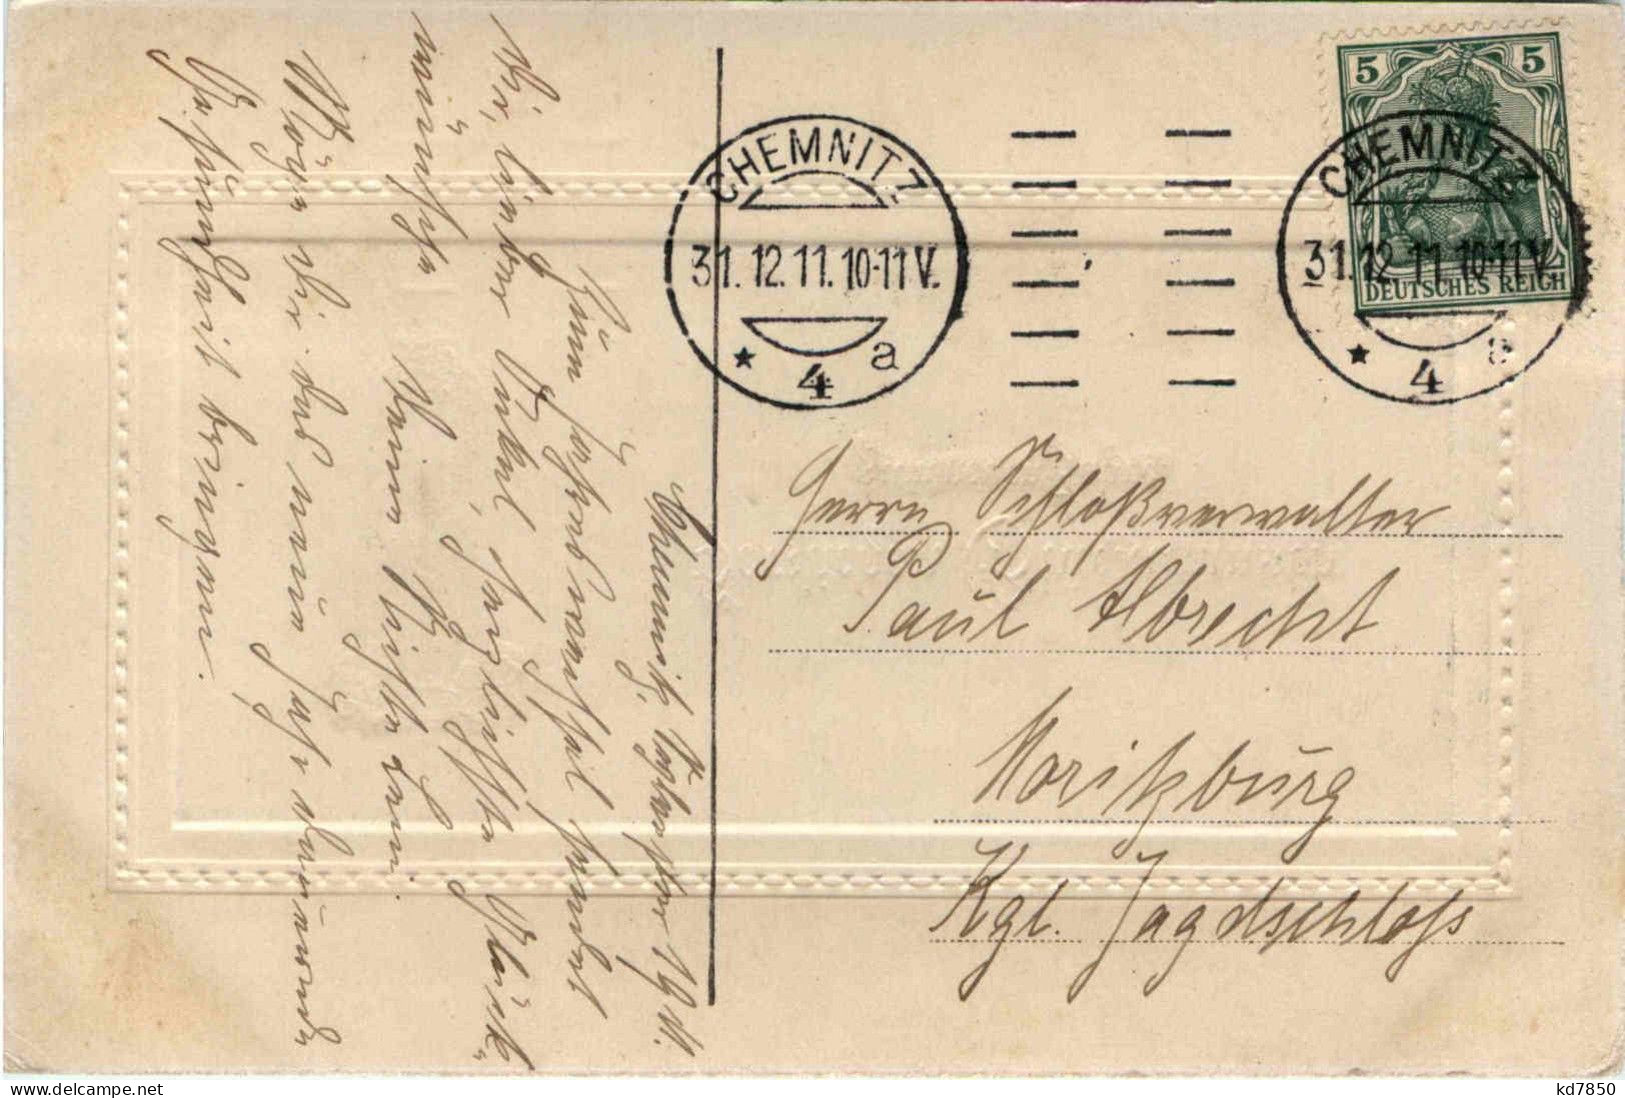 5 5
DEUTSCHES REICH
CHEMNITZ
31.12.11.10-11V.
* 4 a
CHEMNITZ
31.12.11.10-11V.
* 4 a
Herrn Schloßverwalter
Paul Albrecht
Moritzburg
Kgl. Jagdschloss
Chemnitz, Sylvester 1911.
Zum Jahreswechsel sendet
Dir, lieber Onkel, herzlichste Glück
wünsche Deine Nichte
Möge Dir das neue Jahr dauernde
Gesundheit bringen.
www.delcampe.net
kd7850